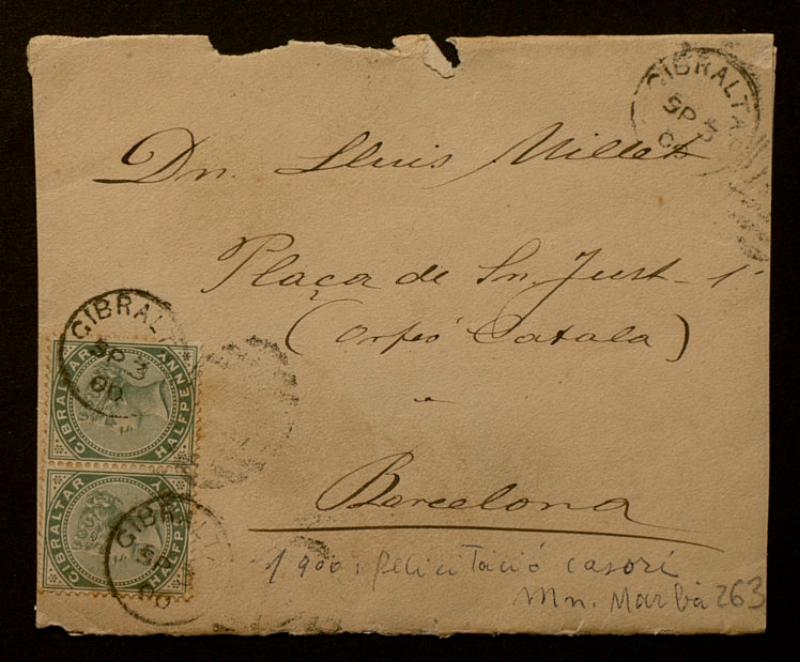 GIBRALTAR
SP 3
00
Dn. Lluis Millet
Plaça de Sn. Just - 1
(Orfeó Catala)
a
Barcelona
GIBRALTAR
SP 3
00
GIBRALTAR
HALFPENNY
GIBRALTAR
HALFPENNY
GIBRALTAR
SP 3
00
1900: felicitació casori
Mn. Marbà 263